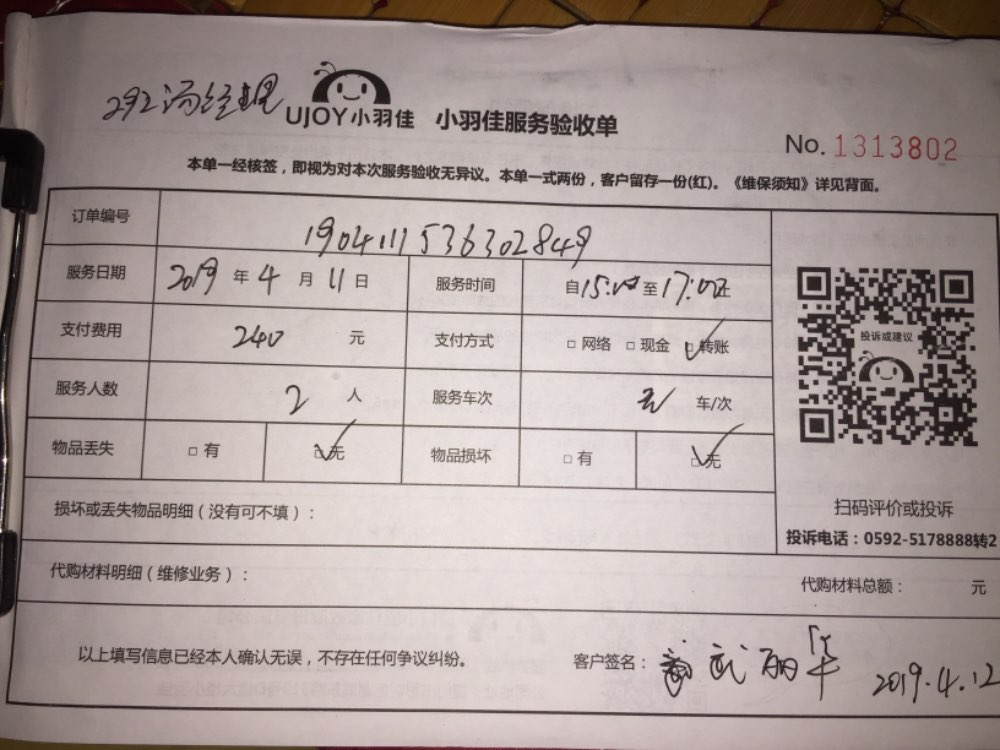 292冯经理
UJOY小羽佳 小羽佳服务验收单
No. 1313802
本单一经核签，即视为对本次服务验收无异议。本单一式两份，客户留存一份(红)。《维保须知》详见背面。
订单编号 190411153630284​9
服务日期 2019 年 4 月 11 日 服务时间 自15:00至17:00止
支付费用 240 元 支付方式 □ 网络 □ 现金 ☑ 转账
服务人数 2 人 服务车次 无 车/次
物品丢失 □ 有 ☑ 无 物品损坏 □ 有 ☑ 无
投诉或建议
扫码评价或投诉
投诉电话：0592-5178888转2
损坏或丢失物品明细（没有可不填）：
代购材料明细（维修业务）： 代购材料总额： 元
以上填写信息已经本人确认无误，不存在任何争议纠纷。 客户签名： 2019.4.12